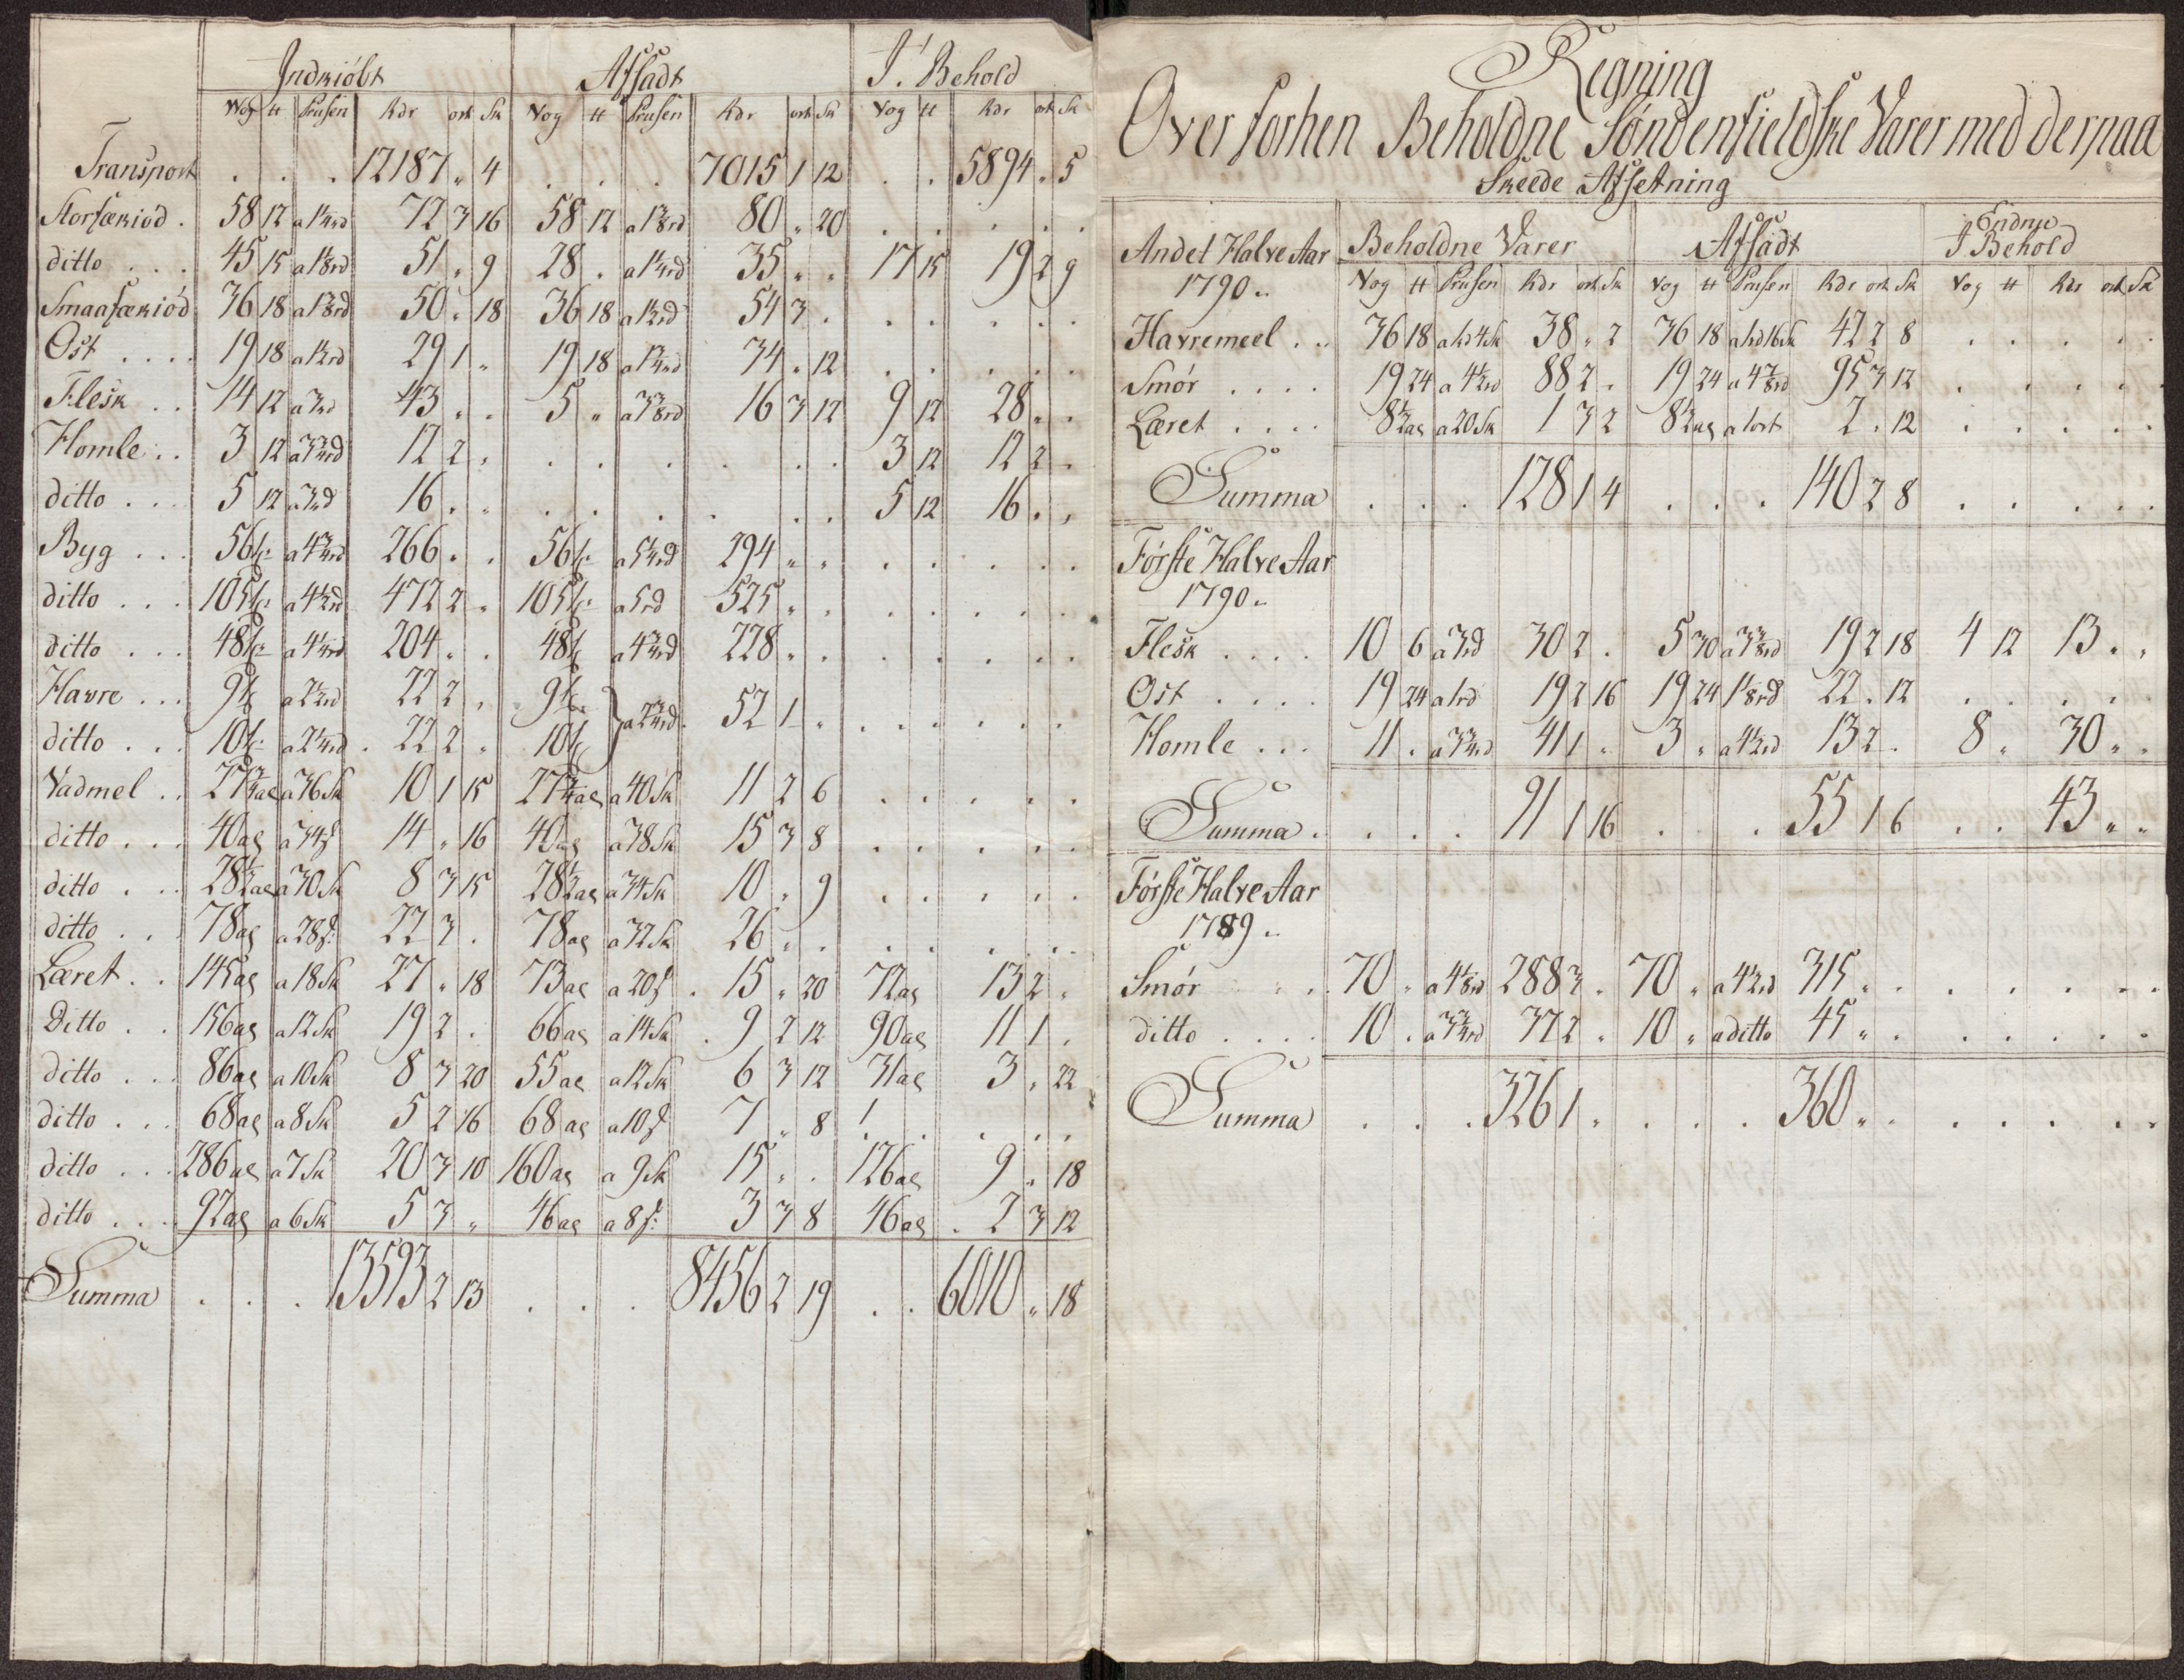 Indkiöbt Afsadt I Behold
Vog ℔ Prisen Rdr ort Sk Vog ℔ Prisen Rdr ort Sk Vog ℔ Rdr ort Sk
Transport . . . 12187 " 4 . . . 7015 1 12 . . 5894 " 5
Storfækiöd . 58 12 a 1¼rd 72 3 16 58 12 a 1⅜rd 80 " 20 . . . . .
ditto . . . 45 15 a 1⅛rd 51 " 9 28 . a 1¼rd 35 " " 17 15 19 2 9
Smaafækiöd 36 18 a 1⅜rd 50 " 18 36 18 a 1½rd 54 3 . . . . . .
Ost . . . . 19 18 a 1½rd 29 1 " 19 18 a 1¾rd 34 " 12 . . . . .
Flesk . . 14 12 a 3rd 43 " . 5 " a 3⅜rd 16 3 12 9 12 28 " .
Homle . . 3 12 a 3¾rd 12 2 " . . . . . . 3 12 12 2 "
ditto . . . 5 12 a 3rd 16 . " . . . . . . 5 12 16 . ,
Byg . . . 56t: a 4¾rd 266 . . 56t: a 5¼rd 294 " " . . . . .
ditto . . . 105t: a 4½rd 472 2 " 105t: a 5rd 525 " . . . . . .
ditto . . . 48t: a 4¼rd 204 . . 48t a 4¾rd 228 " . . . . . .
Havre . . . 9t a 2½rd 22 2 , 9t: } a 2¾rd . 52 1 " . . . . .
ditto . . . 10t: a 2¼rd . 22 2 " 10t
Vadmel . . 27¾al a 36 Sk 10 1 15 27¾al a 40 Sk 11 2 6 . . . . .
ditto . . . 40al a 34s 14 " 16 40al a 38 Sk 15 3 8 . . . . .
ditto . . . 28½al a 30 Sk 8 3 15 28½al a 34 Sk 10 " 9 . . . . .
ditto . . . 78al a 28s: 22 3 . 78al a 32 Sk 26 " . . . . . .
Læret . . 145al a 18 Sk 27 " 18 73al a 20s . 15 " 20 72al 13 2 "
Ditto . . 156al a 12 Sk 19 2 . 66al a 14 Sk . 9 2 12 90al 11 1 .
ditto . . . 86al a 10 Sk 8 3 20 55al a 12 Sk 6 3 12 31al 3 " 22
ditto . . . 68al a 8 Sk 5 2 16 68al a 10s 7 " 8 . . . . .
ditto . . . 286al a 7 Sk 20 3 10 160al a 9 Sk 15 " . 126al 9 " 18
ditto . . . 92al a 6 Sk 5 3 " 46al a 8s: 3 3 8 46al . 2 3 12
Summa . . . 13593 2 13 . . . 8456 2 19 . . 6010 " 18
Regning
Over forhen Beholdne Søndenfieldske Varer med derpaa
Skeede Afsetning
Andet Halve Aar Beholdne Varer Afsadt Endnu I Behold
1790 " Vog ℔ Prisen Rdr ort Sk Vog ℔ Prisen Rdr ort Sk Vog ℔ Rdr ort Sk
Havremeel . . 36 18 a 1rd 4 Sk 38 " 2 36 18 a 1rd 16 Sk 42 2 8 . . . . .
Smör . . . . 19 24 a 4½rd 88 2 . 19 24 a 4⅞rd 95 3 12 . . . . .
Læret . . . . 8½al a 20 Sk 1 3 2 8½al a 1ort 2 . 12 . . . . .
Summa . . . 128 1 4 . . . 140 2 8 . . . . .
Förste Halve Aar
1790 "
Flesk . . . . 10 6 a 3rd 30 2 . 5 30 a 3⅜rd 19 2 18 4 12 13 . "
Ost . . . . 19 24 a 1rd 19 2 16 19 24 1⅛rd 22 . 12 . . . . .
Homle . . . 11 . a 3¾rd 41 1 " 3 " a 4½rd 13 2 . 8 " 30 " .
Summa . . . . 91 1 16 . . . 55 1 6 . . 43 " "
Förste Halve Aar
1789 "
Smör . . . 70 " a 4⅛rd 288 3 . 70 " a 4½rd 315 " . . . . . .
ditto . . . . 10 . a 3¾rd 37 2 . 10 " a ditto 45 " . . . . . .
Summa . . . 326 1 " . . . 360 " . . . . . .